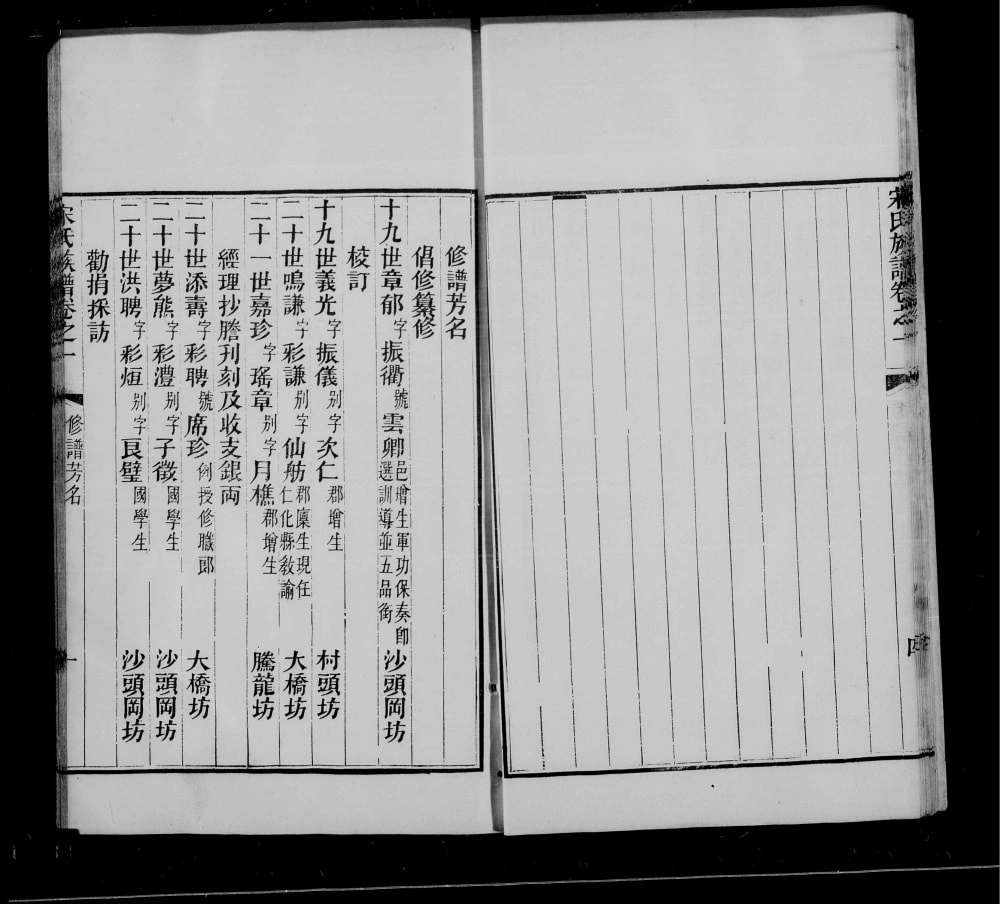 宋氏族譜卷之一
四
修譜芳名
倡修纂修
十九世章郁字振衢號雲卿邑增生軍功保奏即選訓導並五品銜 沙頭岡坊
校訂
十九世義光字振儀别字次仁郡增生 村頭坊
二十世鳴謙字彩謙别字仙舫郡廩生現任仁化縣教諭 大橋坊
二十一世嘉珍字瑤章别字月樵郡增生 騰龍坊
經理抄謄刊刻及收支銀両
二十世添壽字彩聘號席珍例授修職郎 大橋坊
二十世夢熊字彩澧别字子徵國學生 沙頭岡坊
二十世洪聘字彩烜别字良璧國學生 沙頭岡坊
勸捐採訪
宋氏族譜卷之一 修譜芳名 一